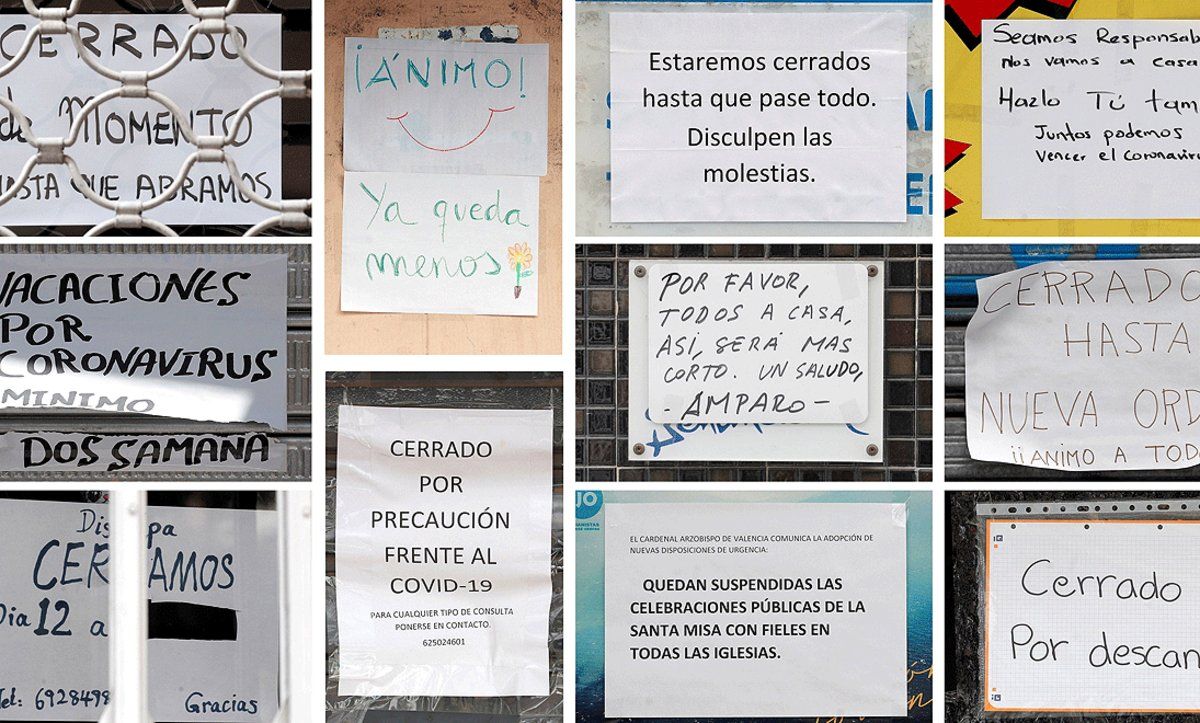 CERRADO
de MOMENTO
HASTA QUE ABRAMOS
¡ÁNIMO!
Ya queda
menos
Estaremos cerrados
hasta que pase todo.
Disculpen las
molestias.
Seamos Responsab
nos vamos a casa
Hazlo Tú tam
Juntos podemos
Vencer el coronaviru
VACACIONES
POR
CORONAVIRUS
MINIMO
DOS SAMANA
CERRADO
POR
PRECAUCIÓN
FRENTE AL
COVID-19
PARA CUALQUIER TIPO DE CONSULTA
PONERSE EN CONTACTO.
625024601
POR FAVOR,
TODOS A CASA,
ASÍ, SERÁ MAS
CORTO. UN SALUDO,
- AMPARO -
CERRADO
HASTA
NUEVA ORD
¡¡ANIMO A TODO
Dis pa
CER AMOS
Dia 12 a
Tel: 6928498
Gracias
EL CARDENAL ARZOBISPO DE VALENCIA COMUNICA LA ADOPCIÓN DE
NUEVAS DISPOSICIONES DE URGENCIA:
QUEDAN SUSPENDIDAS LAS
CELEBRACIONES PÚBLICAS DE LA
SANTA MISA CON FIELES EN
TODAS LAS IGLESIAS.
Cerrado
Por descan